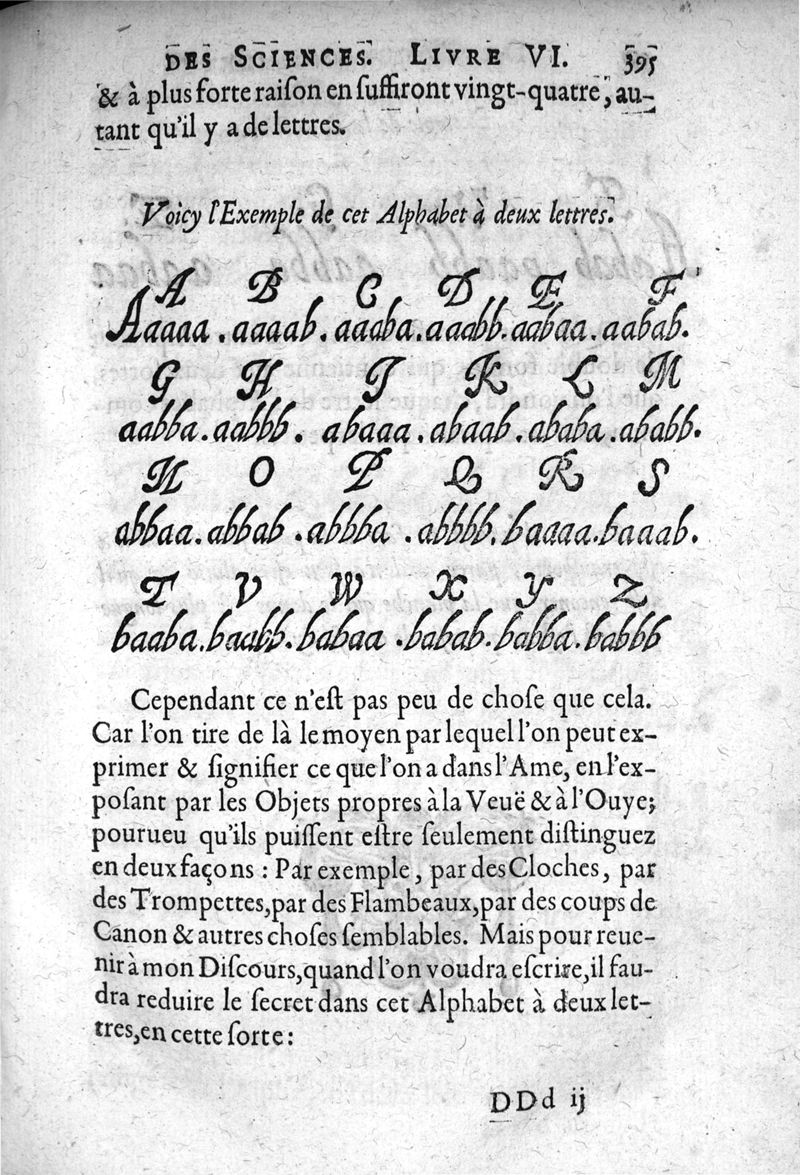 DES SCIENCES. LIVRE VI. 395
& à plus forte raiſon en ſuffiront vingt-quatre, au-
tant qu'il y a de lettres.
Voicy l'Exemple de cet Alphabet à deux lettres.
A B C D E F
Aaaaa . aaaab . aaaba . aaabb . aabaa . aabab.
G H I K L M
aabba . aabbb . abaaa . abaab . ababa . ababb.
N O P Q R S
abbaa . abbab . abbba . abbbb . baaaa . baaab.
T V W X Y Z
baaba . baabb . babaa . babab . babba . babbb
Cependant ce n'eſt pas peu de choſe que cela.
Car l'on tire de là le moyen par lequel l'on peut ex-
primer & ſignifier ce que l'on a dans l'Ame, en l'ex-
poſant par les Objets propres à la Veuë & à l'Ouye;
pourueu qu'ils puiſſent eſtre ſeulement diſtinguez
en deux façons : Par exemple, par des Cloches, par
des Trompettes, par des Flambeaux, par des coups de
Canon & autres choſes ſemblables. Mais pour reue-
nir à mon Diſcours, quand l'on voudra eſcrire, il fau-
dra reduire le ſecret dans cet Alphabet à deux let-
tres, en cette ſorte :
DDd ij